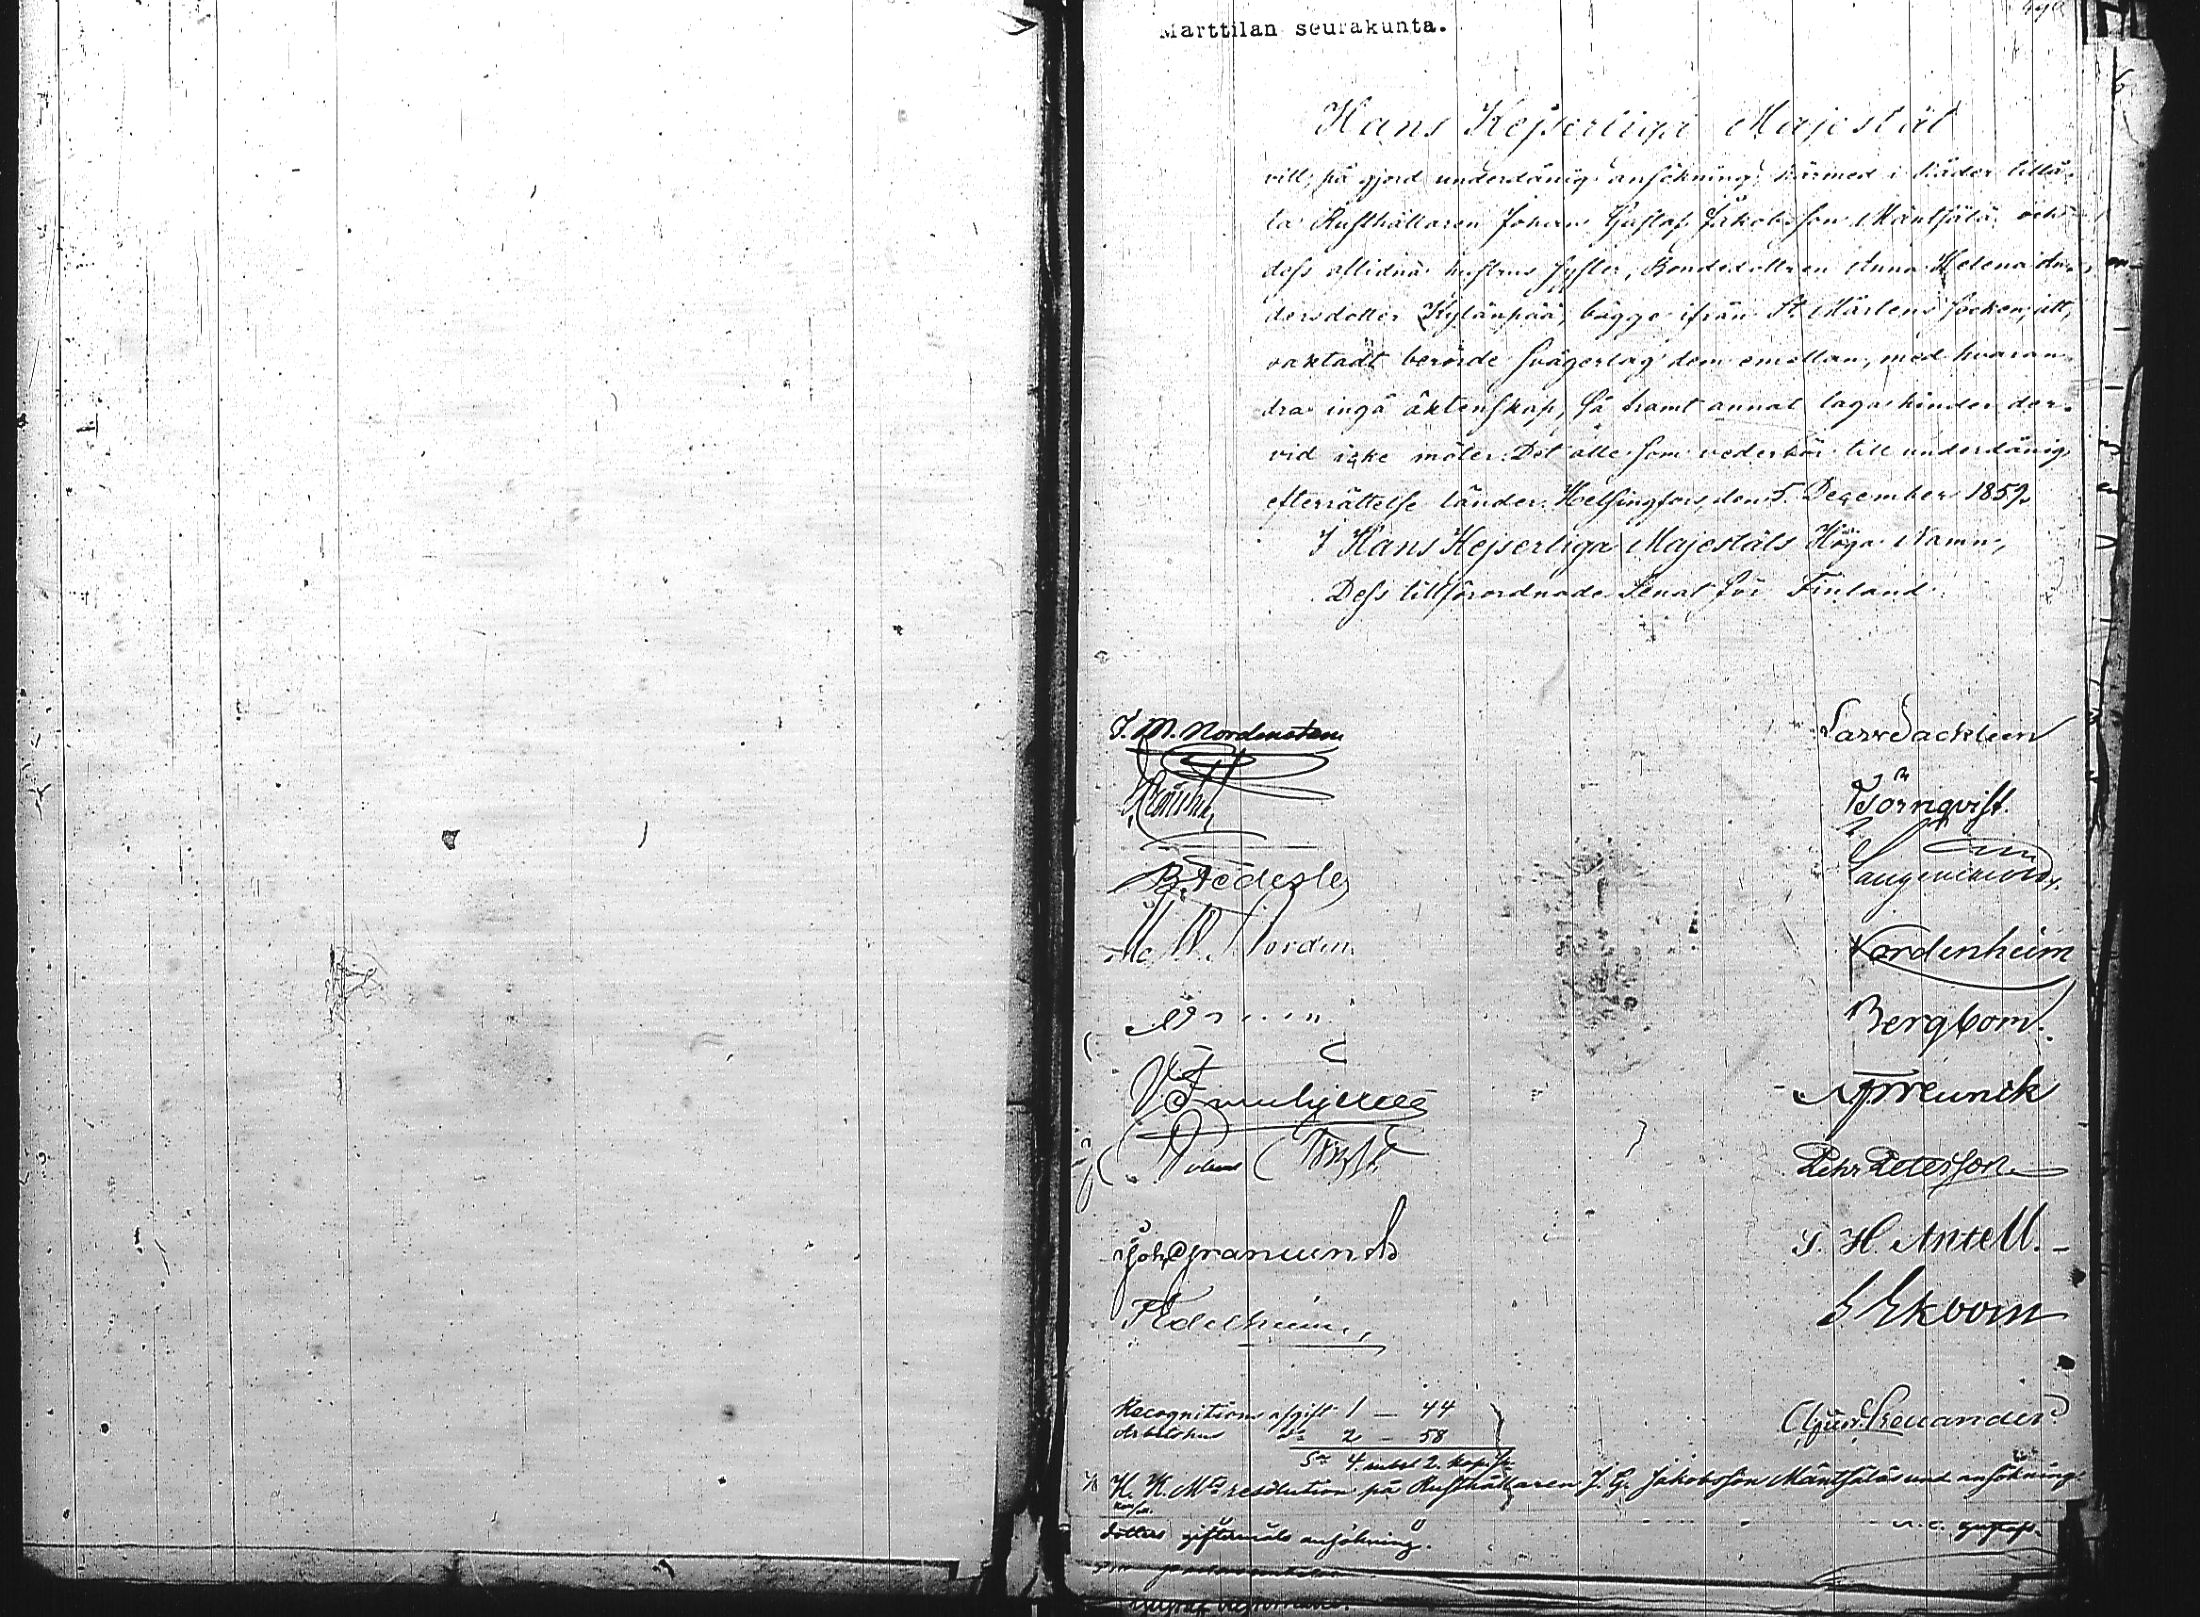 Marttilan seurakunta.
Hans Kejserliga Majestät
vill, på gjord underdånig ansökning, härmed i Nåder tillå-
ta Rusthållaren Johan Gustaf Jakobsson Mäntsälä och
dess aflidna hustrus syster, Bondedottren Anna Helena An-
dersdotter Kylänpää, bägge ifrån St Mårtens socken, att,
oaktadt berörde svågerlag dem emellan, med hvaran-
dra ingå äktenskap, så framt annat laga hinder der-
vid icke möter. Det alle som vederbör till underdånig
efterrättelse länder. Helsingfors, den 5. December 1859.
I Hans Kejserliga Majestäts Höga Namn,
Dess tillförordnade Senat för Finland.
J. M. Nordenstam
Lars Sackleen
Törnqvist.
B. Federley
Langenskiöld.
Nordenheim
Bergbom.
Pehr Peterson
Joh. Granlund
S. H. Antell.
F. Edelheim.
E Ekbom
Recognitions afgift 1 — 44
Arbetshus d:o 2 — 58
S:a 4. rubel 2. kop. S:r
H. K. M:ts resolution på Rusthållaren J. G. Jakobsson Mäntsäläs und. ansökning
dotters giftermåls ansökning.